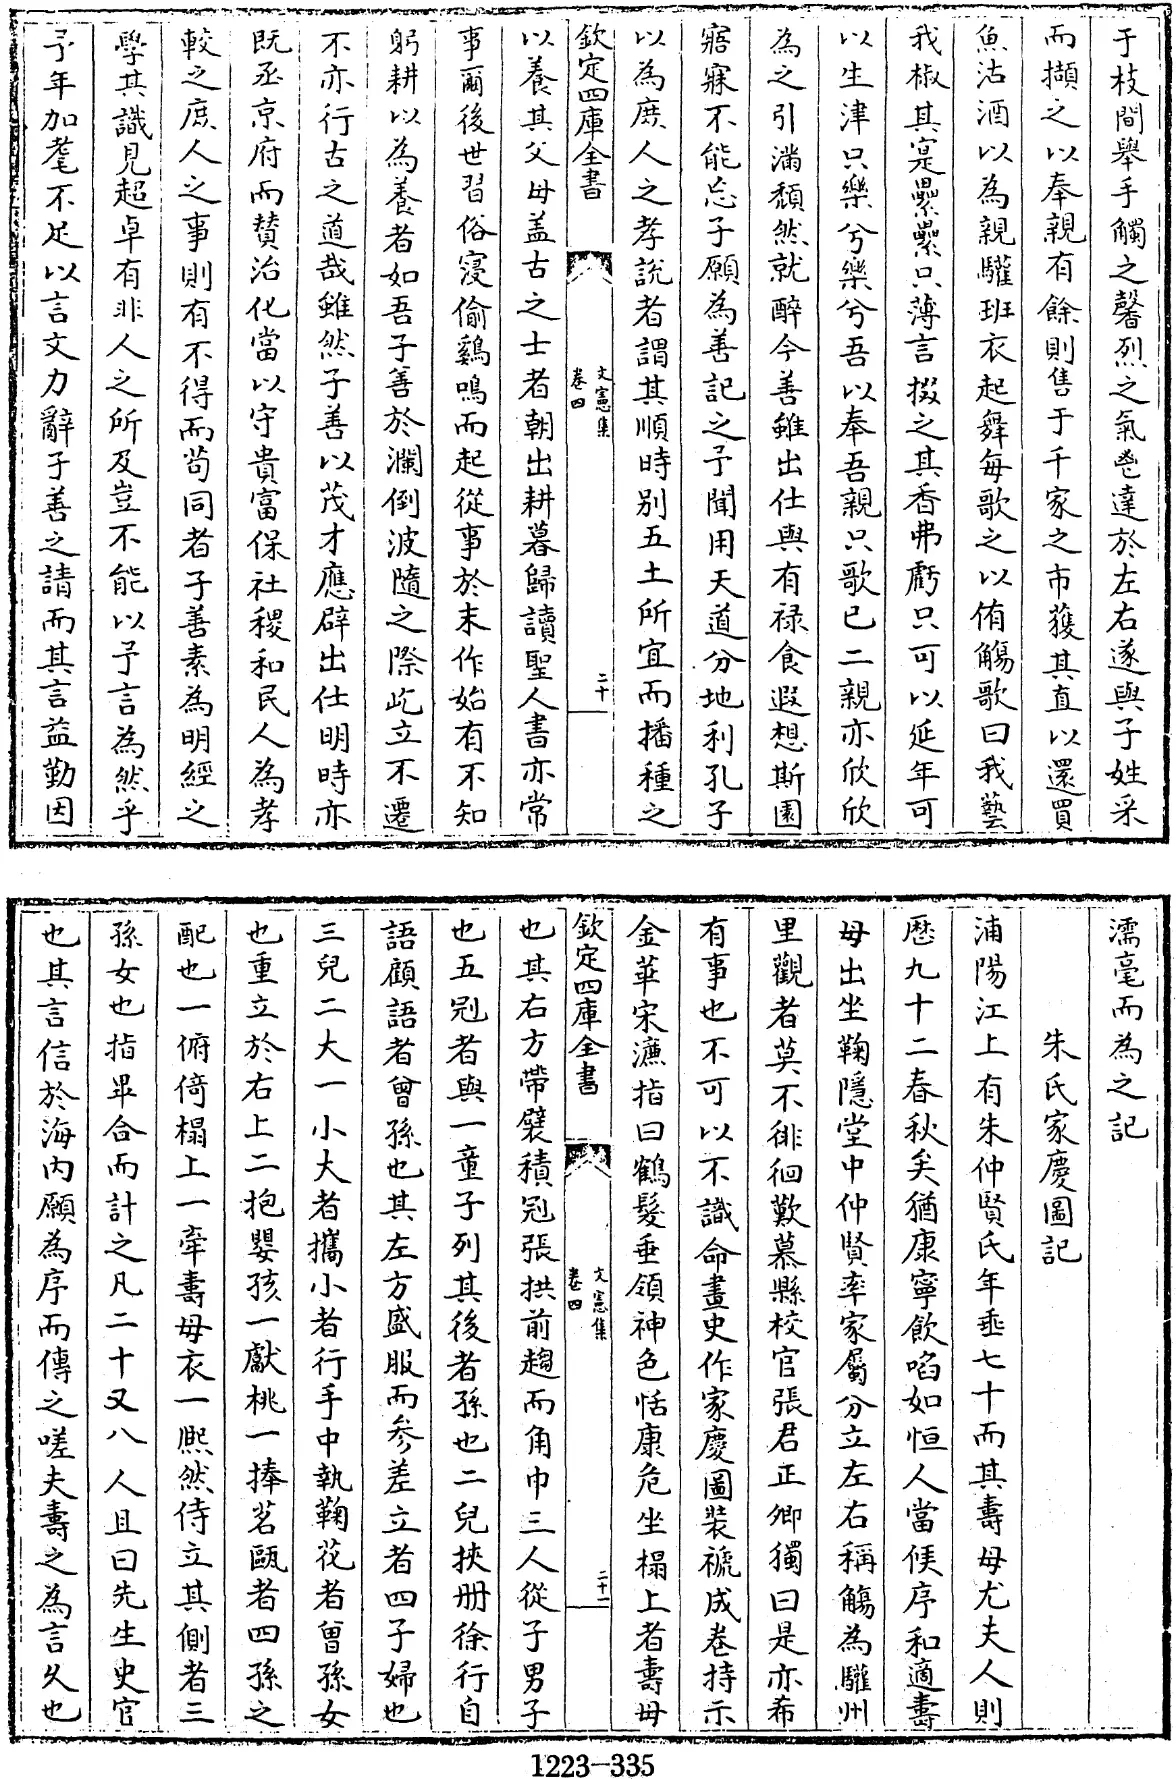 于枝間舉手觸之馨烈之氣鬯達於左右遂與子姓采
而擷之以奉親有餘則售于千家之市獲其直以還買
魚沽酒以為親驩班衣起舞每歌之以侑觴歌曰我藝
我椒其寔纍纍只薄言掇之其香弗虧只可以延年可
以生津只樂兮樂兮吾以奉吾親只歌已二親亦欣欣
為之引滿頽然就醉今善雖出仕與有禄食遐想斯園
寤寐不能忘子願為善記之予聞用天道分地利孔子
以為庶人之孝說者謂其順時别五土所宜而播種之
欽定四庫全書
文憲集
卷四
二十
以養其父母盖古之士者朝出耕暮歸讀聖人書亦常
事爾後世習俗寖偷鷄鳴而起從事於末作始有不知
躬耕以為養者如吾子善於瀾倒波隨之際屹立不遷
不亦行古之道哉雖然子善以茂才應辟出仕明時亦
既丞京府而賛治化當以守貴富保社稷和民人為孝
較之庶人之事則有不得而苟同者子善素為明經之
學其識見超卓有非人之所及豈不能以予言為然乎
予年加耄不足以言文力辭子善之請而其言益勤因
濡毫而為之記
朱氏家慶圖記
浦陽江上有朱仲賢氏年垂七十而其壽母尤夫人則
歴九十二春秋矣猶康寧飲啗如恒人當候序和適壽
母出坐鞠隱堂中仲賢率家屬分立左右稱觴為驩州
里觀者莫不徘徊歎慕縣校官張君正卿獨曰是亦希
有事也不可以不識命畫史作家慶圖裝褫成卷持示
金華宋濂指曰鶴髮垂領神色恬康危坐榻上者壽母
欽定四庫全書
文憲集
卷四
二十一
也其右方帶襞積冠張拱前趨而角巾三人從子男子
也五冠者與一童子列其後者孫也二兒挾册徐行自
語顧語者曾孫也其左方盛服而參差立者四子婦也
三兒二大一小大者攜小者行手中執鞠花者曾孫女
也重立於右上二抱嬰孩一獻桃一捧茗甌者四孫之
配也一俯倚榻上一牽壽母衣一熈然侍立其側者三
孫女也指畢合而計之凡二十又八人且曰先生史官
也其言信於海内願為序而傳之嗟夫壽之為言久也
1223-335